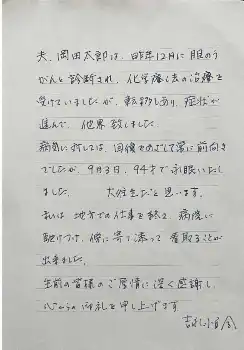 夫、岡田太郎は、昨年12月に眼のう
がんと診断され、化学療法の治療を
受けていましたが、転移しあり、症状が
進んで、他界致しました
病気に対しては、回復をめざして常に前向き
でしたが、9月3日、94才で永眠いたし
ました。 大往生だと思います。
私は、地方での仕事を終え、病院に
駆けつけ、傍に寄り添って看取ることが
出来ました。
生前の皆様のご厚情に深く感謝し、
心からの御礼を申し上げます
吉永小百合